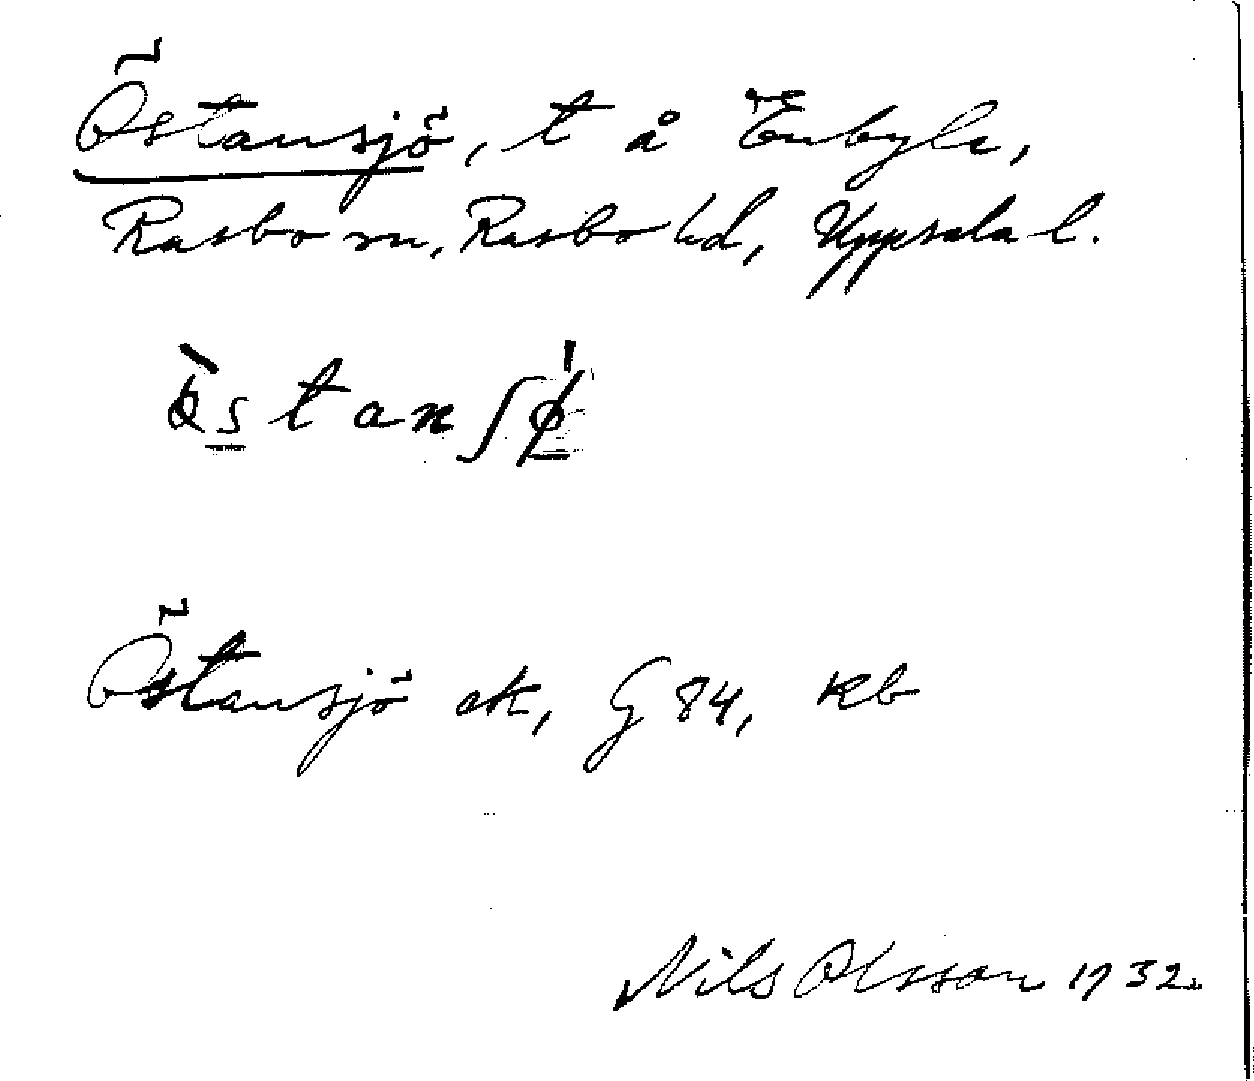 Östansjö, t å Enbyle,
Rasbo sn, Rasbo hd, Uppsala l.
Östansjö ek, G 84, kb
Nils Olsson 1932.